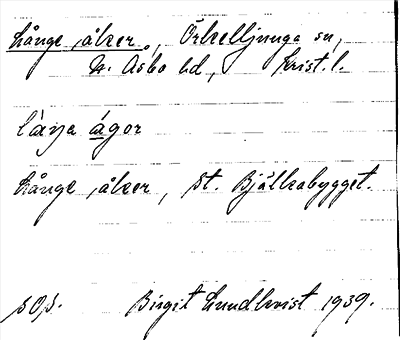 Långe,åker, Örkelljunga sn,
N. Åsbo hd, Krist. l.
lánja ágor
Långe,åker, st. Bjälkabygget.
sop. Birgit Lundkvist 1939.